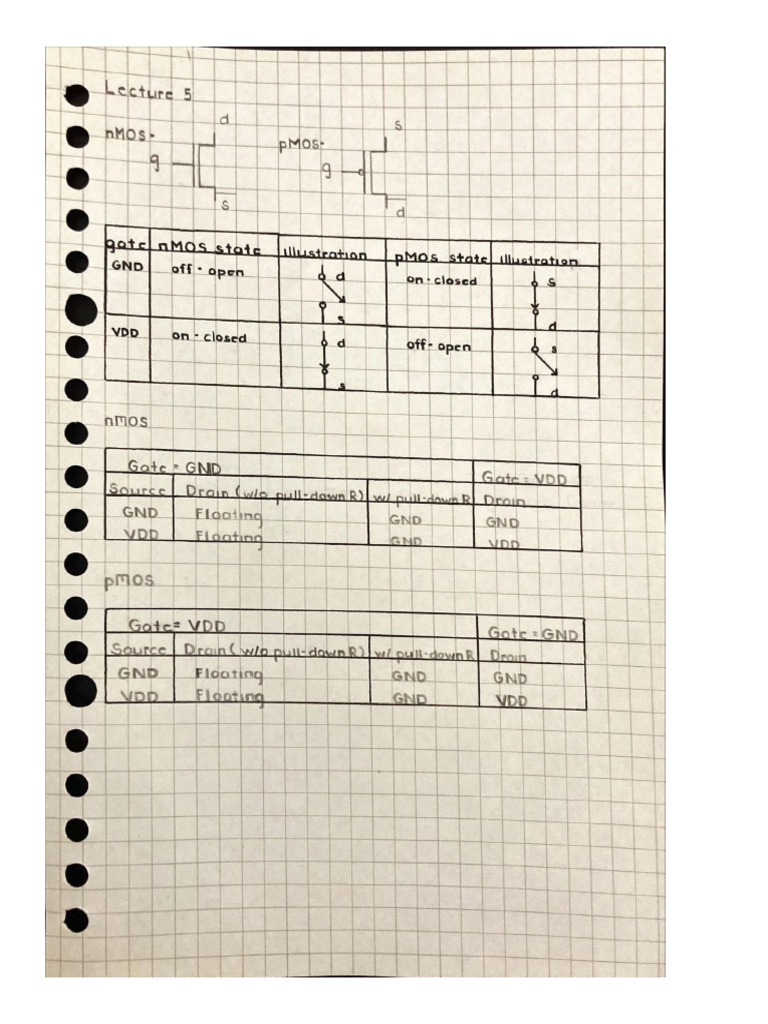 Lecture 5
d
s
nMOS-
pMOS-
g
g
s
d
gate nMOS state illustration pMOS state illustration
GND off - open d on - closed s
s d
VDD on - closed d off - open s
s d
nmos
Gate = GND Gate = VDD
Source Drain (w/o pull-down R) w/ pull-down R Drain
GND Floating GND GND
VDD Floating GND VDD
pmos
Gate = VDD Gate = GND
Source Drain (w/o pull-down R) w/ pull-down R Drain
GND Floating GND GND
VDD Floating GND VDD